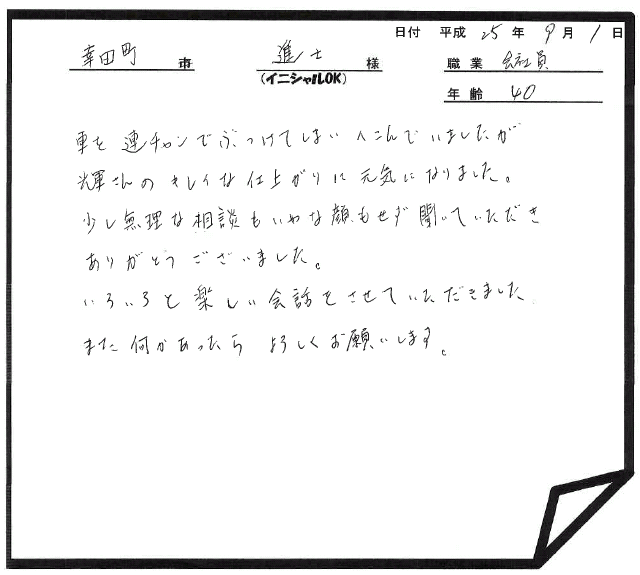 日付 平成 25 年 9 月 1 日
幸田町 市 進士 様 職業 会社員
(イニシャルOK)
年齢 40
車を連チャンでぶつけてしまいへこんでいましたが
輝さんのキレイな仕上がりに元気になりました。
少し無理な相談もいやな顔もせず聞いていただき
ありがとうございました。
いろいろと楽しい会話をさせていただきました
また何かあったらよろしくお願いします。